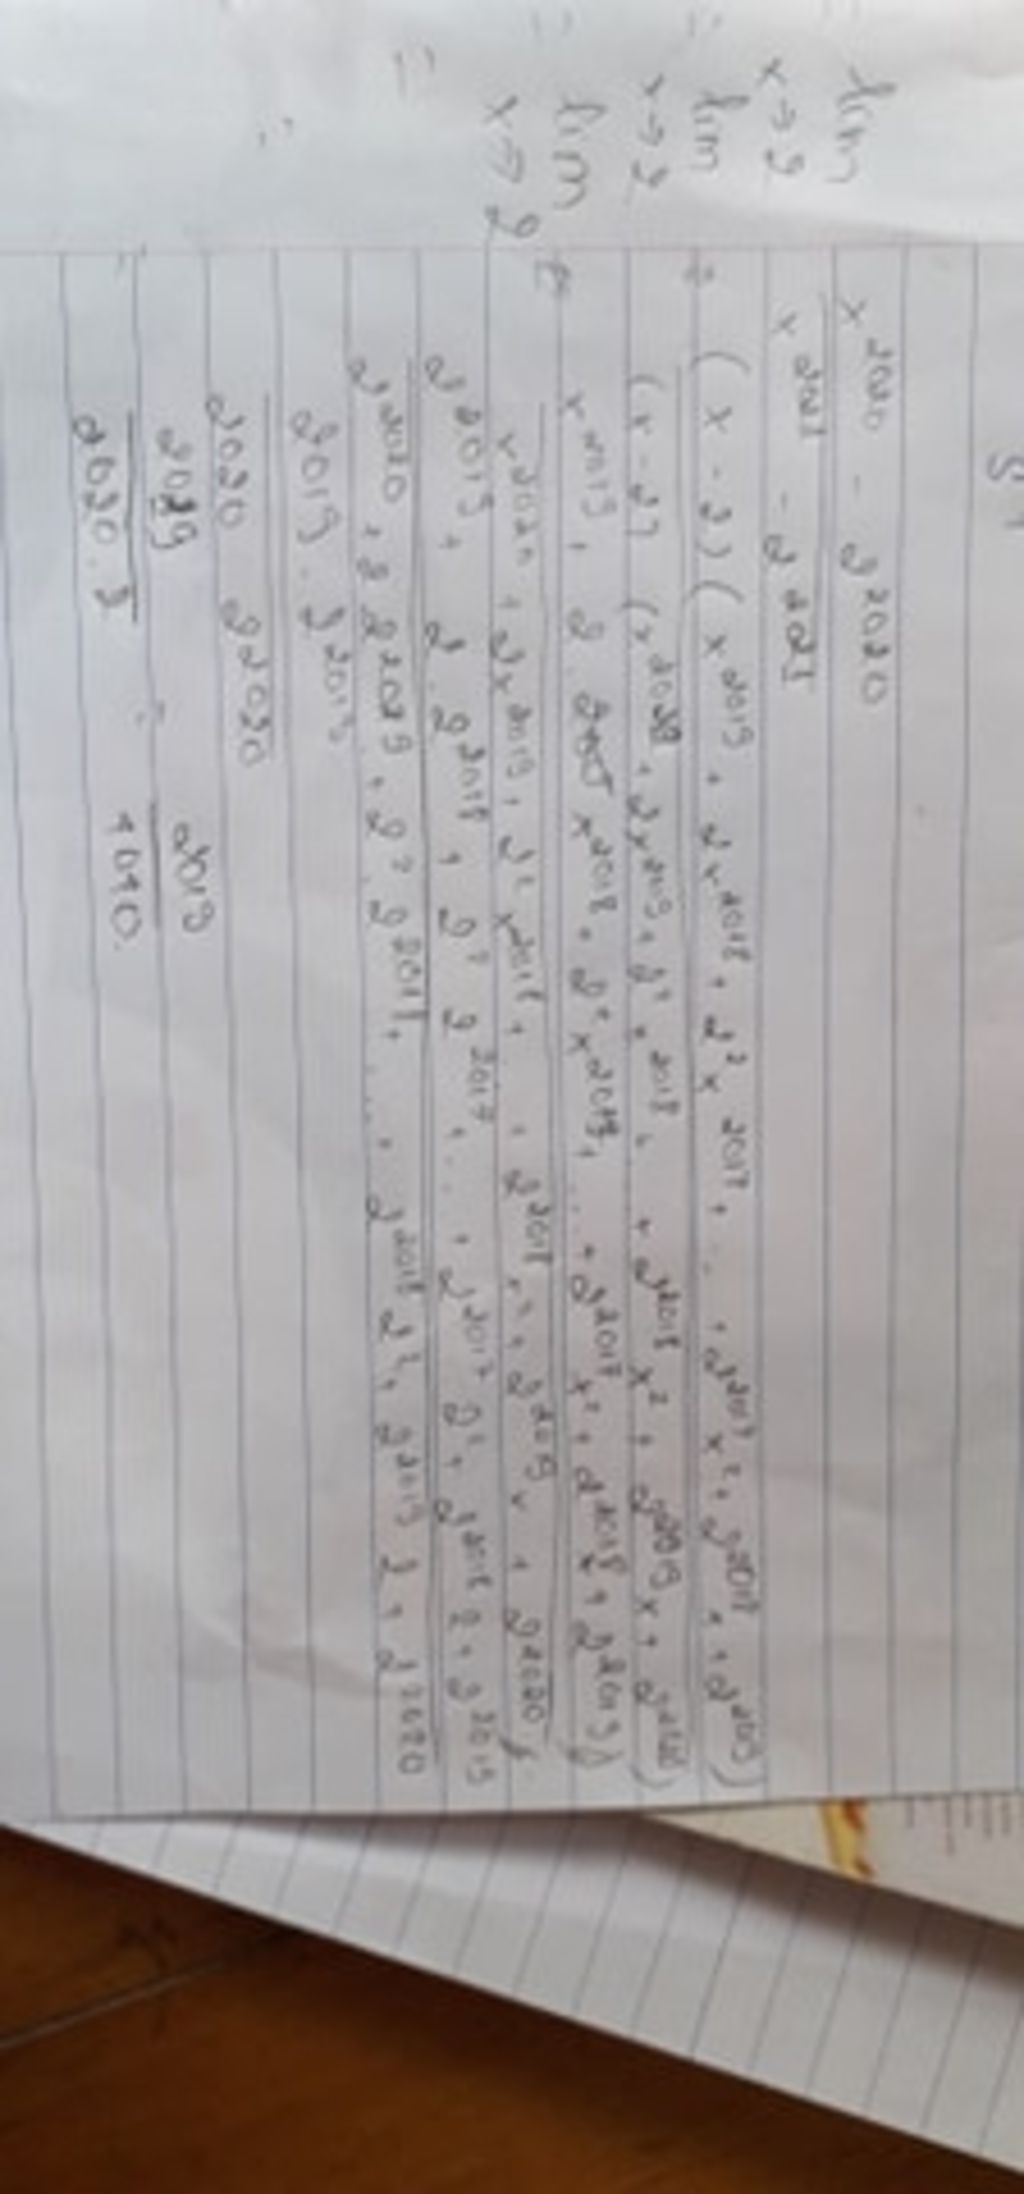 lim x→2 x^2020 - 2^2020 / x^2021 - 2^2021
= lim x→2 (x - 2)(x^2019 + 2x^2018 + 2^2 x^2017 + ... + 2^2017 x^2 + 2^2018 x + 2^2019) / (x - 2)(x^2020 + 2x^2019 + 2^2 x^2018 + ... + 2^2018 x^2 + 2^2019 x + 2^2020)
= lim x→2 x^2019 + 2 x^2018 + 2^2 x^2017 + ... + 2^2017 x^2 + 2^2018 x + 2^2019 / x^2020 + 2x^2019 + 2^2 x^2018 + ... + 2^2018 x^2 + 2^2019 x + 2^2020
= 2^2019 + 2 . 2^2018 + 2^2 2^2017 + ... + 2^2017 2^2 + 2^2018 2 + 2^2019 / 2^2020 + 2 2^2019 + 2^2 2^2018 + ... + 2^2018 2^2 + 2^2019 2 + 2^2020
= 2019 . 2^2019 / 2020 2^2020
= 2019 / 2020 . 2 = 2019 / 4040